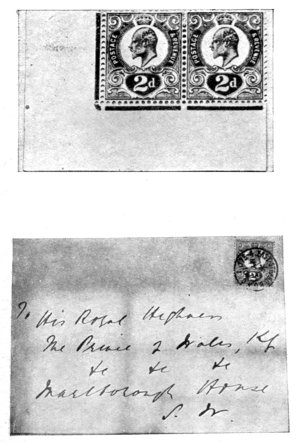 POSTAGE & REVENUE POSTAGE & REVENUE
2d 2d
To His Royal Highness
The Prince of Wales, KG
&c &c &c
Marlborough House
S. W.